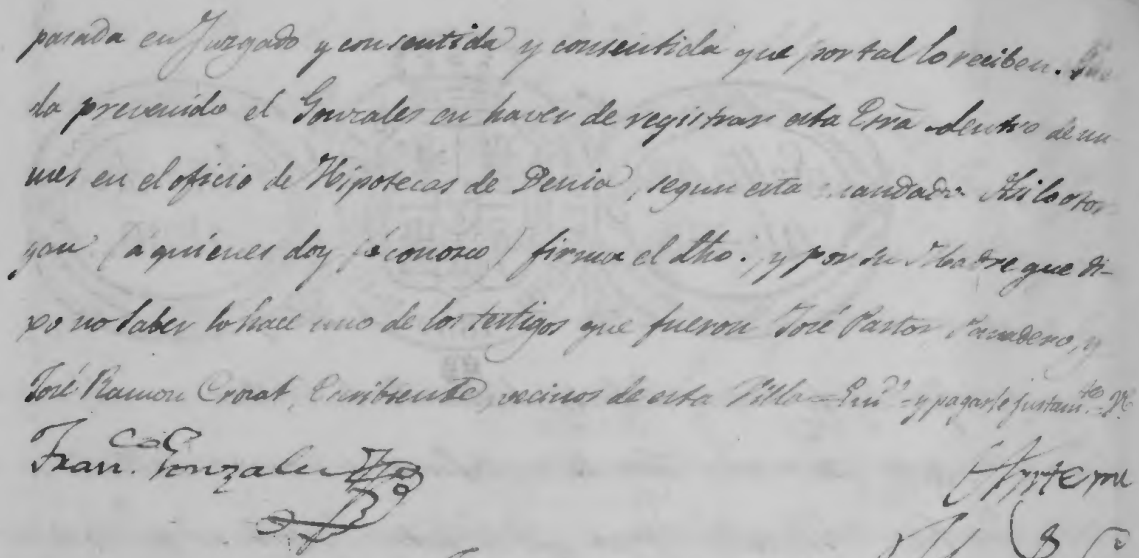 pasada en Juzgado y consentida y consentida que por tal lo reciben.
da prevenido el Gonzales en haver de registrar esta Esrā dentro de un
mes en el oficio de Hipotecas de Denia, segun esta mandado. Asi lo otor
gan (a quienes doy fé conosco) firma el dho. y por su Madre que di-
xo no saber lo hace uno de los testigos que fueron José Pastor Panadero, y
José Ramon Crozat, Escribiente, vecinos de esta Villa = y pagarle justam.te
Fran.co Gonzales
Ante mi